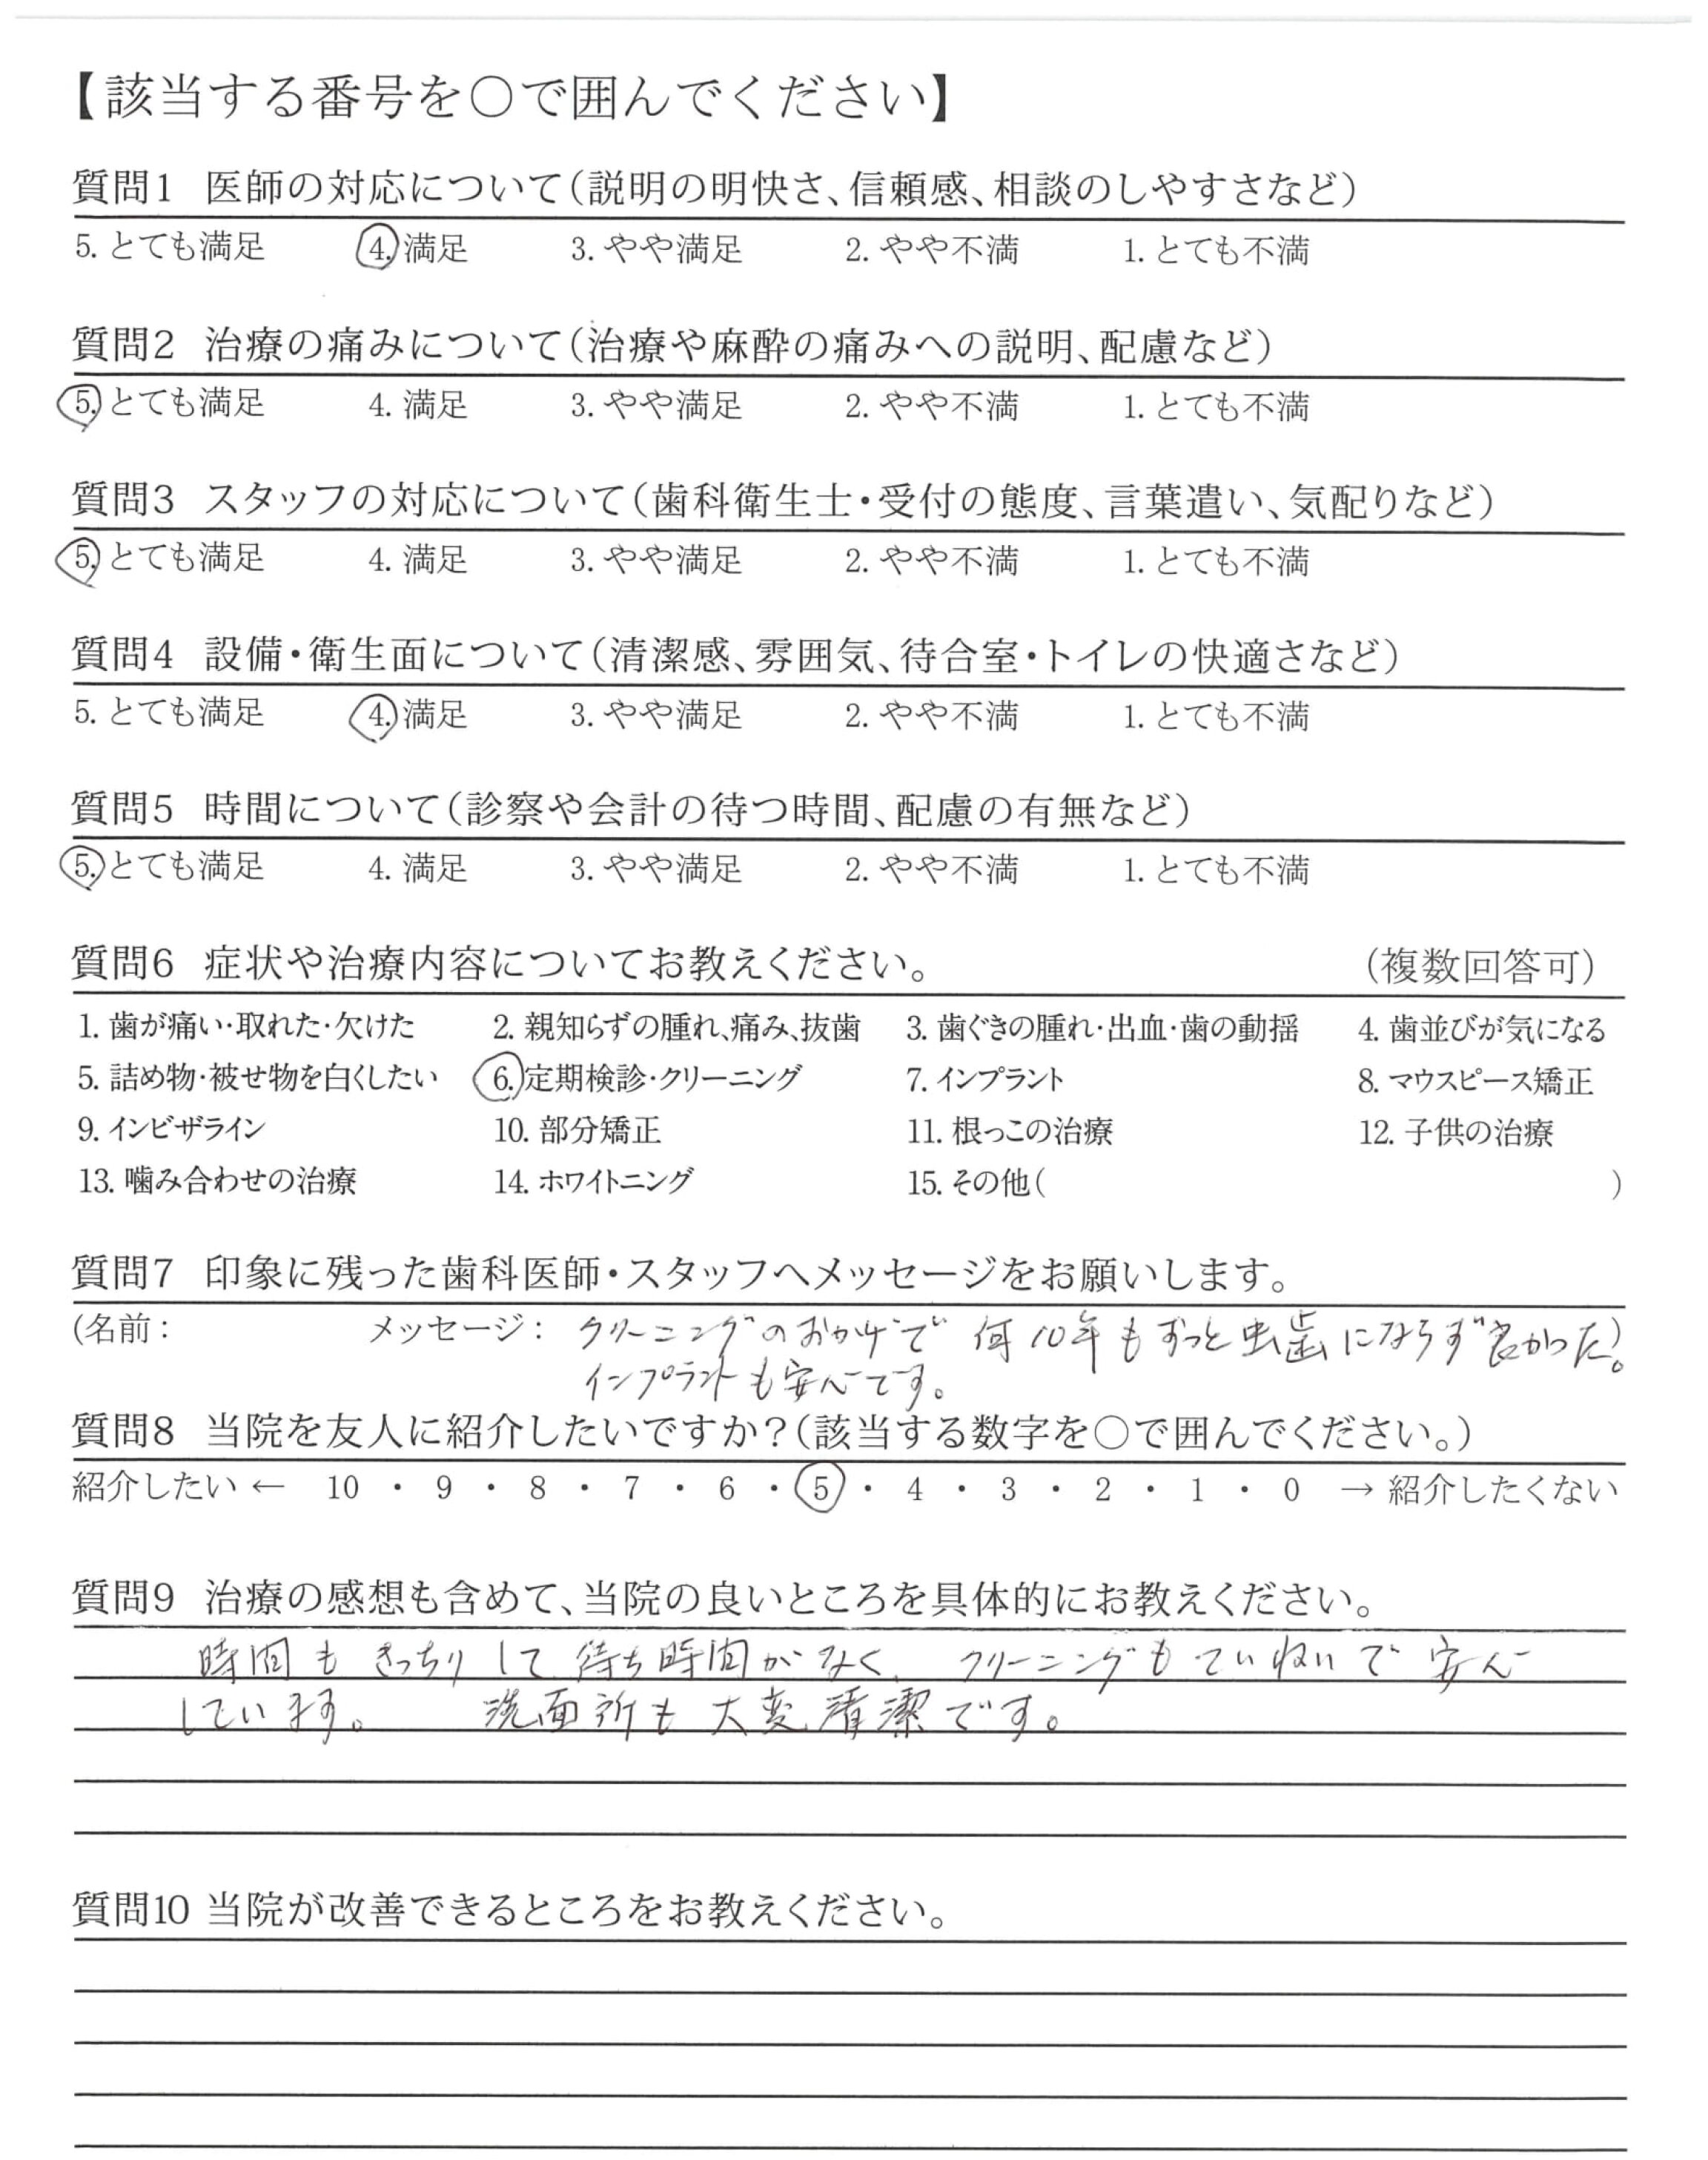 【該当する番号を○で囲んでください】
質問1 医師の対応について(説明の明快さ、信頼感、相談のしやすさなど)
5. とても満足 4. 満足 3. やや満足 2. やや不満 1. とても不満
質問2 治療の痛みについて(治療や麻酔の痛みへの説明、配慮など)
5. とても満足 4. 満足 3. やや満足 2. やや不満 1. とても不満
質問3 スタッフの対応について(歯科衛生士・受付の態度、言葉遣い、気配りなど)
5. とても満足 4. 満足 3. やや満足 2. やや不満 1. とても不満
質問4 設備・衛生面について(清潔感、雰囲気、待合室・トイレの快適さなど)
5. とても満足 4. 満足 3. やや満足 2. やや不満 1. とても不満
質問5 時間について(診察や会計の待つ時間、配慮の有無など)
5. とても満足 4. 満足 3. やや満足 2. やや不満 1. とても不満
質問6 症状や治療内容についてお教えください。 (複数回答可)
1. 歯が痛い・取れた・欠けた 2. 親知らずの腫れ、痛み、抜歯 3. 歯ぐきの腫れ・出血・歯の動揺 4. 歯並びが気になる
5. 詰め物・被せ物を白くしたい 6. 定期検診・クリーニング 7. インプラント 8. マウスピース矯正
9. インビザライン 10. 部分矯正 11. 根っこの治療 12. 子供の治療
13. 噛み合わせの治療 14. ホワイトニング 15. その他( )
質問7 印象に残った歯科医師・スタッフへメッセージをお願いします。
(名前: メッセージ: クリーニングのおかげで 何10年もずっと虫歯にならず良かった。)
インプラントも安心です。
質問8 当院を友人に紹介したいですか?(該当する数字を○で囲んでください。)
紹介したい ← 10 ・ 9 ・ 8 ・ 7 ・ 6 ・ 5 ・ 4 ・ 3 ・ 2 ・ 1 ・ 0 → 紹介したくない
質問9 治療の感想も含めて、当院の良いところを具体的にお教えください。
時間もきっちりして待ち時間がなく、クリーニングもていねいで安心
しています。 洗面所も大変清潔です。
質問10 当院が改善できるところをお教えください。